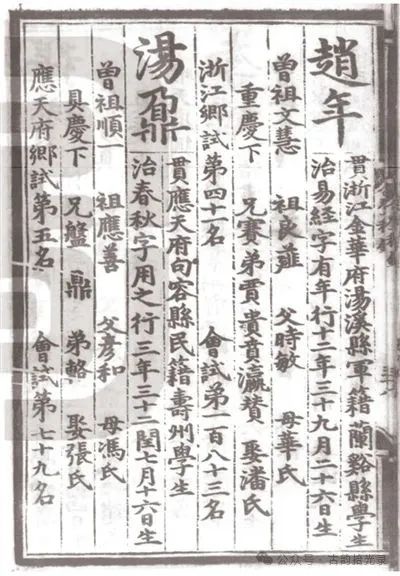 趙年
貫浙江金華府湯溪縣軍籍蘭谿縣學生
治易經字有年行十二年三十九月二十六日生
曾祖文慧 祖良蕋 父時敏 母華氏
重慶下 兄賽弟賈貴賁瀛贊 娶潘氏
浙江鄉試第四十一名 會試第一百八十三名
湯鼐
貫應天府句容縣民籍壽州學生
治春秋字用之行三年三十二閏七月十六日生
曾祖順一 祖應善 父彥和 母馮氏
具慶下 兄盤 鼎 弟輅 娶張氏
應天府鄉試第五名 會試第七十九名
公众号·古韵拾光录